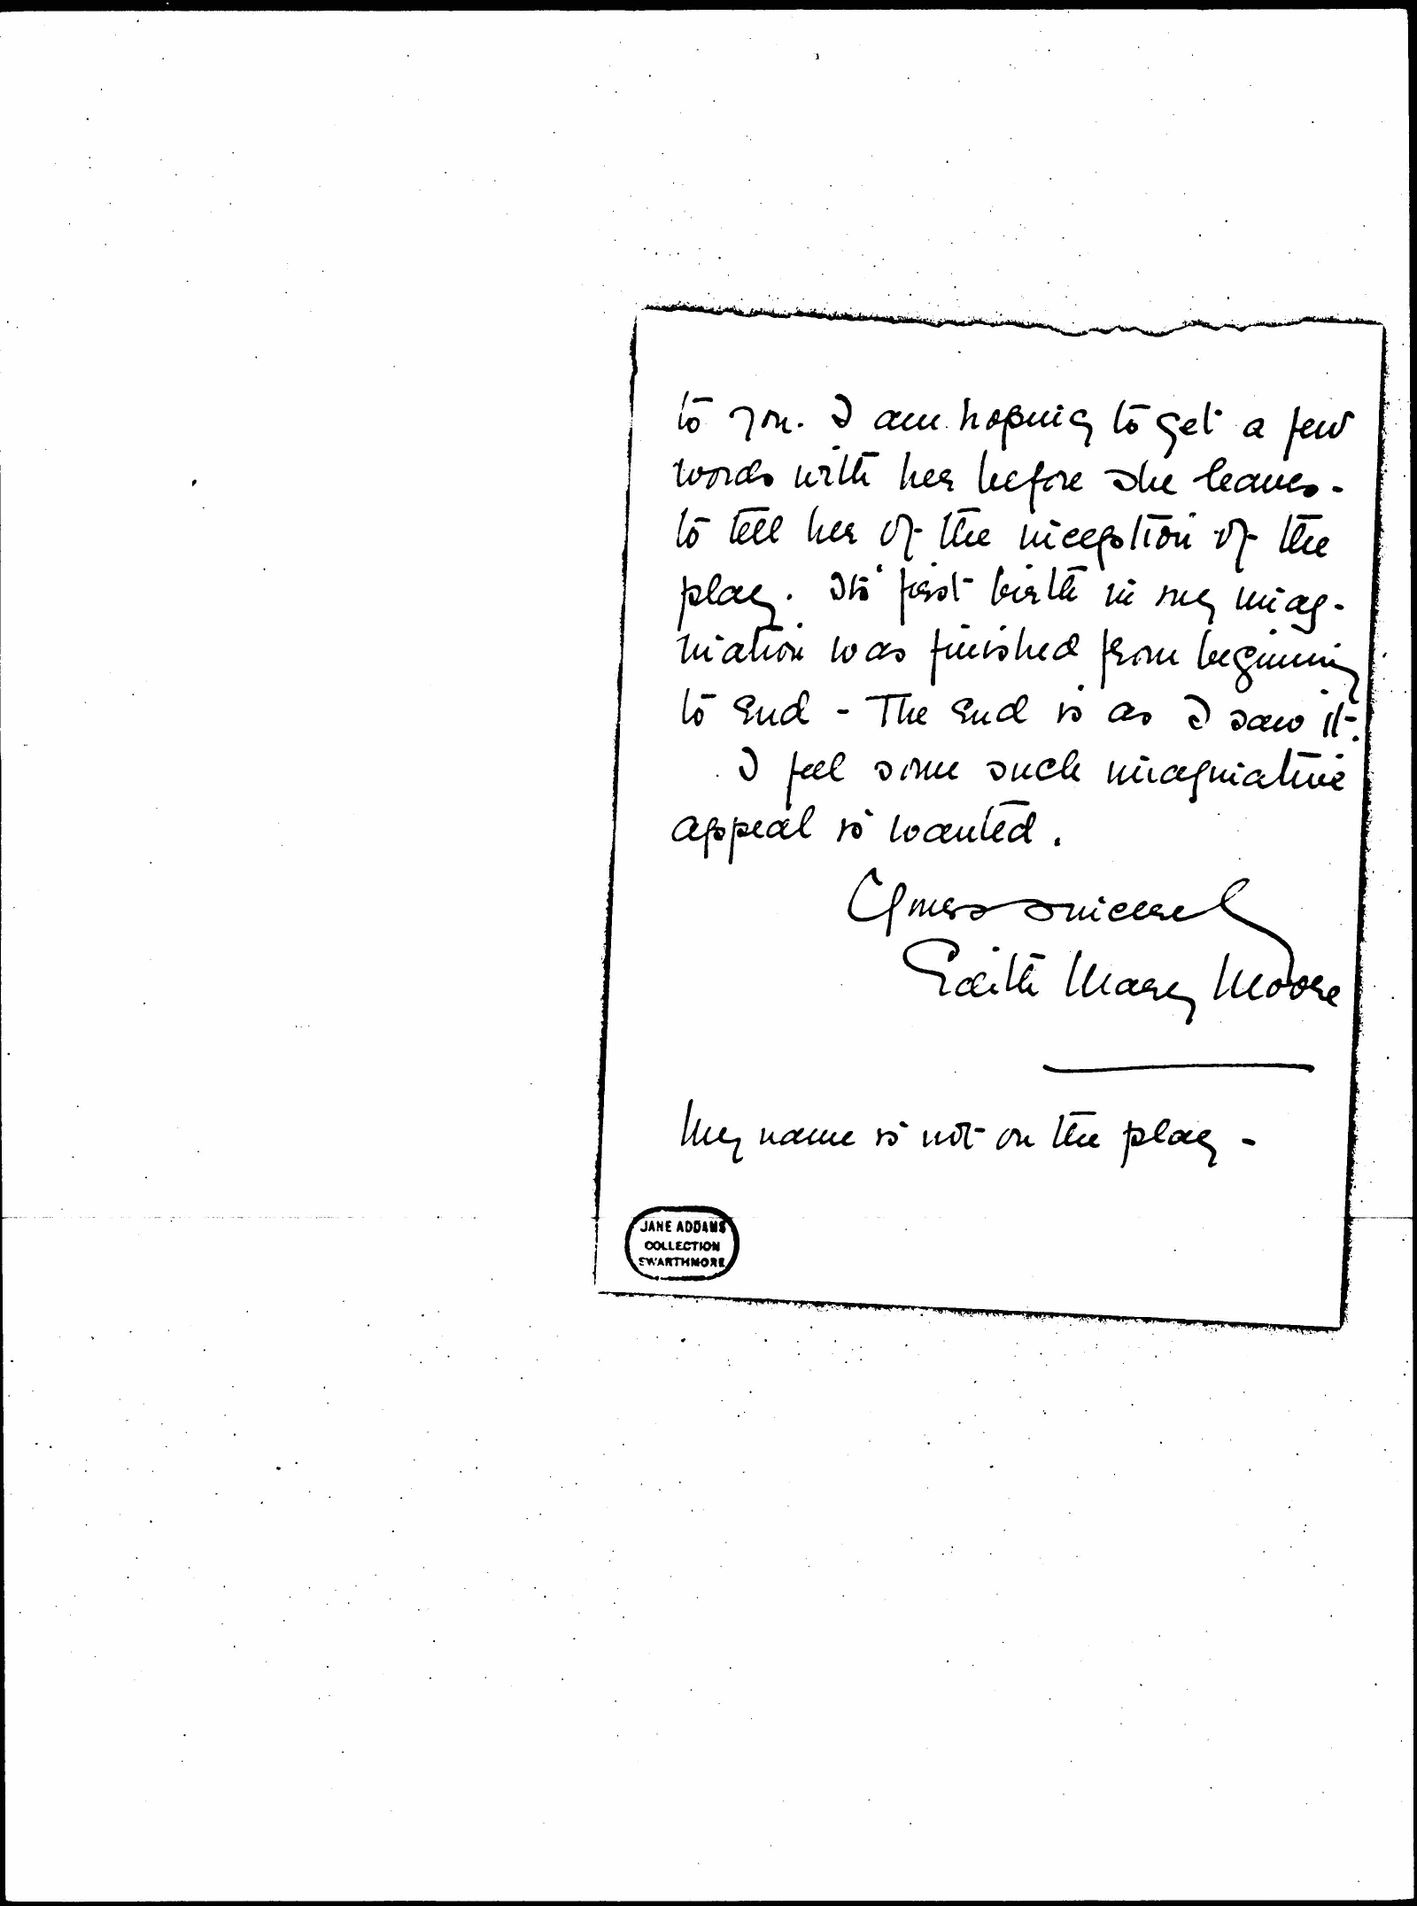 to you. I am hoping to get a few
words with her before she leaves -
to tell her of the inception of the
play. Its first birth in my imag-
ination was finished from beginning
to end - The end is as I saw it.
I feel some such imaginative
appeal is wanted.
Yours sincerely
Edith Mary Moore
My name is not on the play -
JANE ADDAMS
COLLECTION
SWARTHMORE